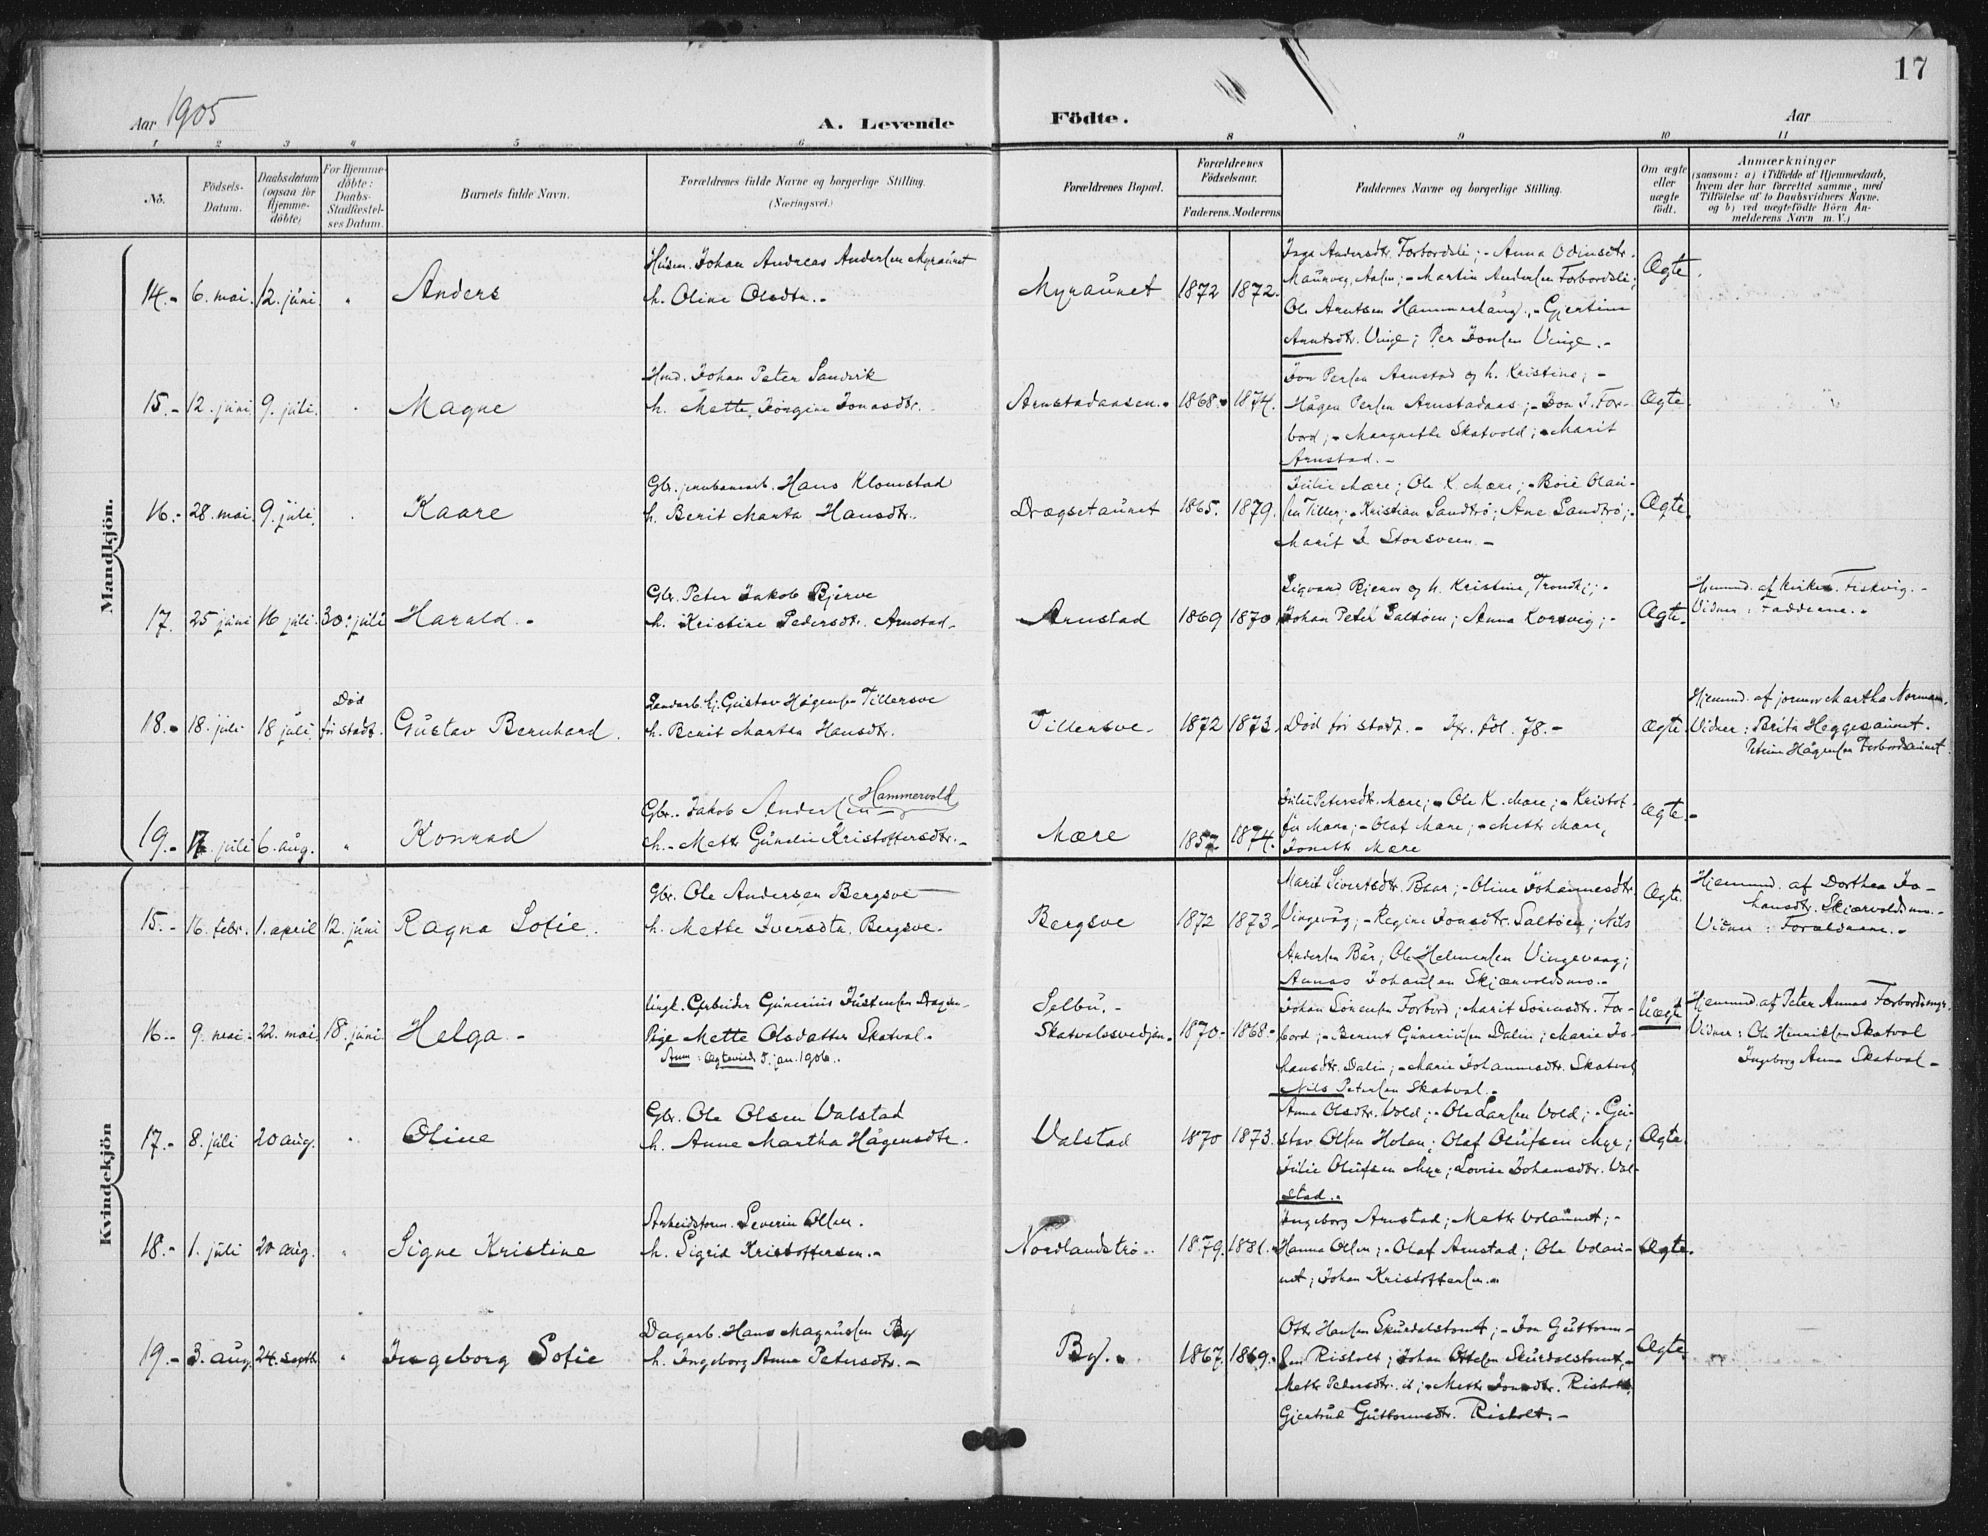 17
Aar 1905
A. Levende
Födte.
Aar
1 2 3 4 5 6 8 9 10 11
No.
Födsels-
Datum.
Daabsdatum
(ogsaa for
Hjemme-
döbte)
For Hjemme-
döbte:
Daabs-
Stadfæstel-
ses Datum.
Barnets fulde Navn.
Forældrenes fulde Navne og borgerlige Stilling.
(Næringsvei.)
Forældrenes Bopæl.
Forældrenes
Födselsaar.
Faderens. Moderens
Faddernes Navne og borgerlige Stilling.
Om ægte
eller
uægte
födt.
Anmærkninger
(saasom: a) i Tilfælde af Hjemmedaab,
hvem der har forrettet samme, med
Tilföielse af to Daabsvidners Navne.
og b) ved uægtefödte Börn An-
melderens Navn m. V.)
Mandkjön.
14.- 6. mai. 12. juni " Anders
Husm. Johan Andreas Andersen Myraunet
h. Oline Olsdtr.-
Myraunet 1872 1872.
Inga Andersdtr. Forbordsli; - Anna Odinsdtr.
Martin Andersen Forbordsli;
Ole Arntsen Hammerhaug.,- Gjertine
Arntsdtr. Vinge; Per Jonsen Vinge.-
Ægte.
15.- 12. juni 9. juli. " Magne
Johan Peter Sandvik
h. Mette Jörgine Jonasdtr.
Arnstadaasen. 1868. 1874.
Jon Persen Arnstad og h. Kristine; -
Hågen Persen Arnstadaas; - Jon J. For-
bord; - Margrethe Skatvold; - Marit
Arnstad.-
Ægte.
16.- 28. mai 9. juli. " Kaare
Gbr. jernbanearb. Hans Klomstad
h. Berit Marta Hansdtr.
Drægsetaunet 1865. 1879.
Julie Mære; Ole K. Mære; - Boie Olau-
sen Tiller; - Kristian Sandtrö; Ane Sandtrö;-
Marit J. Storsveen.-
Ægte.
17. 25 juni 16 juli. 30. juli Harald.-
Gbr. Peter Jakob Bjerve
h. Kristine Pedersdtr. Arnstad-
Arnstad 1869 1870
Sigvard Bjerve og h. Kristine, Trondhj;-
Johan Peter Saltöien; Anna Korsvig;-
Ægte.
Hjemmd. af kirkes. Fiskvig.-
Vidner: Fadderne.-
18.- 18. juli 18 juli.
Död
för stadf.
Gustav Bernhard.
Gustav Hågensen Tillersve
h. Berit Martha Hansdtr.
Tillersve. 1872 1873.
Död för stadf. - fol. 78.-
Ægte.
Hjemmd. af jormor Martha Norman.
Vidner: Brita Heggesaunet.
Petrine Hågensen Forbordsaunet.
19.- 17. juli 6. aug. " Konrad
Gbr. Jakob Andersen Hammervold
h.- Mette Gunelie Kristoffersdtr.-
Mære 1857 1874.
Julie Petersdtr. Mære; - Ole K. Mære; - Kristof-
fer Mære; - Olaf Mære; - Mette Mære,
Jonette Mære
Ægte.-
Kvindekjön
15.- 16. febr. 1. april 12. juni Ragna Sofie.
Gbr. Ole Andersen Bergsve
h. Mette Iversdtr. Bergsve.
Bergsve 1872 1873-
Marit Sivertsdtr. Baar; - Oline Johannesdtr.
Vingevåg; - Regine Jonsdtr. Saltöien; Nils
Andersen Bår; Ole Helmersen Vingevaag;
Annas Johansen Skjærvoldsmo.-
Ægte.
Hjemmd. af Dorthea Jo-
hansdtr. Skjærvoldsmo.-
Vidner: Forældrene.-
16.- 9. mai.- 22. mai. 18. juni. Helga.-
Ungk. Arbeider Gunerius Justensen
Pige Mette Olsdatter Skatval.-
Anm: Ægteviede 5. jan. 1906.
Selbu.-
Skatvalsvedjan. 1870- 1868-
Johan Sörensen Forbord; Marit Sörensdtr. For-
bord; - Bernt Guneriusen Dalin; Marie Jo-
hansdtr. Dalin; - Marie Johannesdtr. Skatval
Nils Petersen Skatval.-
Uægte
Hjemmd. af Peter Annas Forbordsmyr.
Vidner: Ole Henriksen Skatval
Ingeborg Anna Skatval-
17.- 8. juli 20 aug. " Oline
Gbr. Ole Olsen Valstad
h. Anne Martha Hågensdtr.
Valstad 1870 1873.
Anna Olsdtr. Vold; - Ole Larsen Vold; - Gu-
stav Olsen Holan; Olaf Olufsen Myr;
Julie Olufsen Myr; Lovise Johansdtr. Val-
stad.-
Ægte.
18.- 1. juli 20 aug. " Signe Kristine
Arbeidsform. Severin Olsen.
h. Sigrid Kristoffersen.-
Nordlandströ.. 1879. 1881.
Ingeborg Arnstad; Mette Volaunet;-
Hanna Olsen; - Olaf Arnstad; Ole Volau-
net; Johan Kristoffersen.-
Ægte.
19.- 3. aug. 24. septb. " Ingeborg Sofie
Dagarb. Hans Magnussen By
h. Ingeborg Anna Petersdtr.-
By. 1867. 1869.
Otte Hansen Skurdalstomt; - Jon Guttorm-
sen Risholt; Johan Ottesen Skurdalstomt,-
Mette Pedersdtr. it; - Mette Jonsdtr. Risholt,
Gjertrud Guttormsdtr. Risholt.-
Ægte.